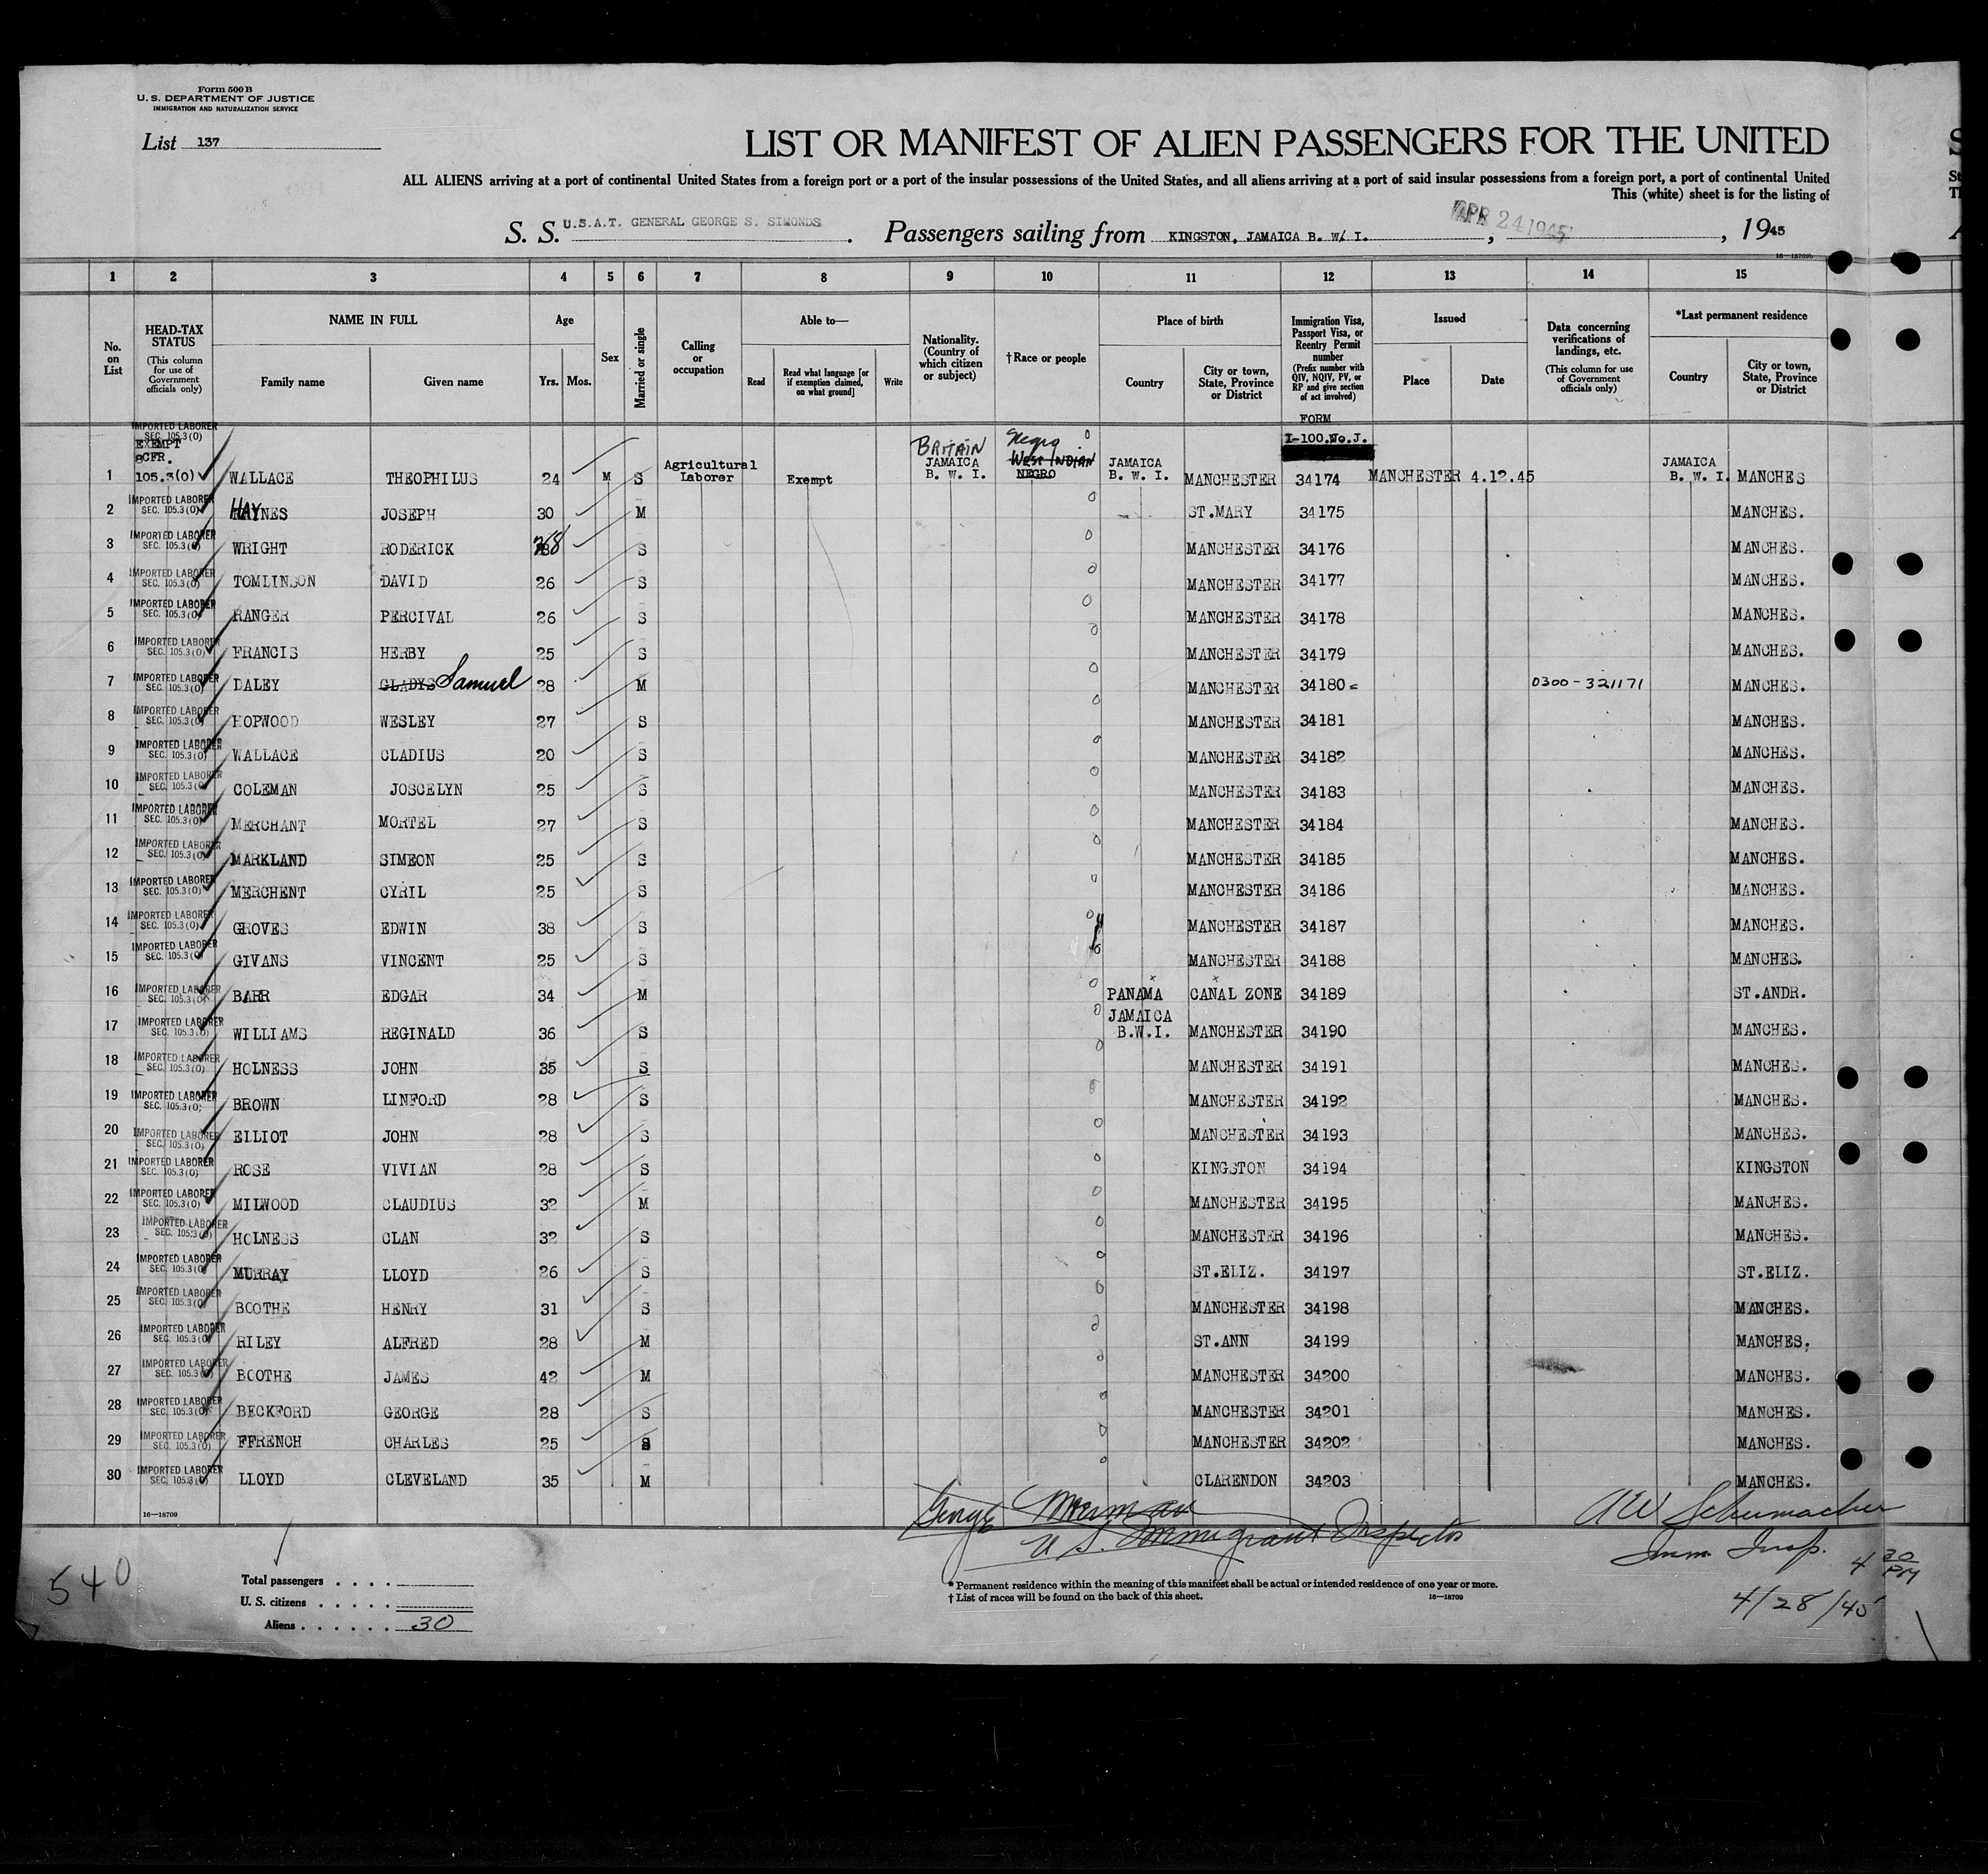 Form 500 B
U. S. DEPARTMENT OF JUSTICE
IMMIGRATION AND NATURALIZATION SERVICE
List 137
LIST OR MANIFEST OF ALIEN PASSENGERS FOR THE UNITED
ALL ALIENS arriving at a port of continental United States from a foreign port or a port of the insular possessions of the United States, and all aliens arriving at a port of said insular possessions from a foreign port, a port of continental United
This (white) sheet is for the listing of
S. S. U.S.A.T. GENERAL GEORGE S. SIMONDS. Passengers sailing from KINGSTON, JAMAICA B. W. I. , APR 24 1945 , 1945
16—18709b
1 2 3 4 5 6 7 8 9 10 11 12 13 14 15
No. on List
HEAD-TAX STATUS (This column for use of Government officials only)
NAME IN FULL
Family name
Given name
Age
Yrs.
Mos.
Sex
Married or single
Calling or occupation
Able to—
Read
Read what language [or if exemption claimed, on what ground]
Write
Nationality. (Country of which citizen or subject)
†Race or people
Place of birth
Country
City or town, State, Province or District
Immigration Visa, Passport Visa, or Reentry Permit number (Prefix number with QIV, NQIV, PV, or RP and give section of act involved)
Issued
Place
Date
Data concerning verifications of landings, etc. (This column for use of Government officials only)
*Last permanent residence
Country
City or town, State, Province or District
FORM
I-100.No.J.
IMPORTED LABORER SEC. 105.3(0)
EXEMPT
8CFR.
BRITAIN Negro
West Indian
1 105.3(0) WALLACE THEOPHILUS 24 M S Agricultural Laborer Exempt JAMAICA B. W. I. NEGRO JAMAICA B. W. I. MANCHESTER 34174 MANCHESTER 4.12.45 JAMAICA B. W. I. MANCHES
2 IMPORTED LABORER SEC. 105.3(0) HAYNES JOSEPH 30 M ST.MARY 34175 MANCHES.
3 IMPORTED LABORER SEC. 105.3(0) WRIGHT RODERICK 38 S MANCHESTER 34176 MANCHES.
4 IMPORTED LABORER SEC. 105.3(0) TOMLINSON DAVID 26 S MANCHESTER 34177 MANCHES.
5 IMPORTED LABORER SEC. 105.3(0) RANGER PERCIVAL 26 S MANCHESTER 34178 MANCHES.
6 IMPORTED LABORER SEC. 105.3(0) FRANCIS HERBY 25 S MANCHESTER 34179 MANCHES.
7 IMPORTED LABORER SEC. 105.3(0) DALEY GLADYS Samuel 28 M MANCHESTER 34180 0300-321171 MANCHES.
8 IMPORTED LABORER SEC. 105.3(0) HOPWOOD WESLEY 27 S MANCHESTER 34181 MANCHES.
9 IMPORTED LABORER SEC. 105.3(0) WALLACE CLADIUS 20 S MANCHESTER 34182 MANCHES.
10 IMPORTED LABORER SEC. 105.3(0) COLEMAN JOSCELYN 25 S MANCHESTER 34183 MANCHES.
11 IMPORTED LABORER SEC. 105.3(0) MERCHANT MORTEL 27 S MANCHESTER 34184 MANCHES.
12 IMPORTED LABORER SEC. 105.3(0) MARKLAND SIMEON 25 S MANCHESTER 34185 MANCHES.
13 IMPORTED LABORER SEC. 105.3(0) MERCHENT CYRIL 25 S MANCHESTER 34186 MANCHES.
14 IMPORTED LABORER SEC. 105.3(0) GROVES EDWIN 38 S MANCHESTER 34187 MANCHES.
15 IMPORTED LABORER SEC. 105.3(0) GIVANS VINCENT 25 S MANCHESTER 34188 MANCHES.
16 IMPORTED LABORER SEC. 105.3(0) BARR EDGAR 34 M PANAMA CANAL ZONE 34189 ST.ANDR.
17 IMPORTED LABORER SEC. 105.3(0) WILLIAMS REGINALD 36 S JAMAICA B.W.I. MANCHESTER 34190 MANCHES.
18 IMPORTED LABORER SEC. 105.3(0) HOLNESS JOHN 35 S MANCHESTER 34191 MANCHES.
19 IMPORTED LABORER SEC. 105.3(0) BROWN LINFORD 28 S MANCHESTER 34192 MANCHES.
20 IMPORTED LABORER SEC. 105.3(0) ELLIOT JOHN 28 S MANCHESTER 34193 MANCHES.
21 IMPORTED LABORER SEC. 105.3(0) ROSE VIVIAN 28 S KINGSTON 34194 KINGSTON
22 IMPORTED LABORER SEC. 105.3(0) MILWOOD CLAUDIUS 32 M MANCHESTER 34195 MANCHES.
23 IMPORTED LABORER SEC. 105.3(0) HOLNESS CLAN 32 S MANCHESTER 34196 MANCHES.
24 IMPORTED LABORER SEC. 105.3(0) MURRAY LLOYD 26 S ST.ELIZ. 34197 ST.ELIZ.
25 IMPORTED LABORER SEC. 105.3(0) BOOTHE HENRY 31 S MANCHESTER 34198 MANCHES.
26 IMPORTED LABORER SEC. 105.3(0) RILEY ALFRED 28 M ST.ANN 34199 MANCHES.
27 IMPORTED LABORER SEC. 105.3(0) BOOTHE JAMES 42 M MANCHESTER 34200 MANCHES.
28 IMPORTED LABORER SEC. 105.3(0) BECKFORD GEORGE 28 S MANCHESTER 34201 MANCHES.
29 IMPORTED LABORER SEC. 105.3(0) FFRENCH CHARLES 25 S MANCHESTER 34202 MANCHES.
30 IMPORTED LABORER SEC. 105.3(0) LLOYD CLEVELAND 35 M CLARENDON 34203 MANCHES.
16—18709
George
U S. Immigrant Inspector
AW Schumacher
Imm. Insp. 4 30 PM
4/28/45
540
Total passengers . . . .
U. S. citizens . . . . .
Aliens . . . . . . 30
* Permanent residence within the meaning of this manifest shall be actual or intended residence of one year or more.
† List of races will be found on the back of this sheet.
16—18709